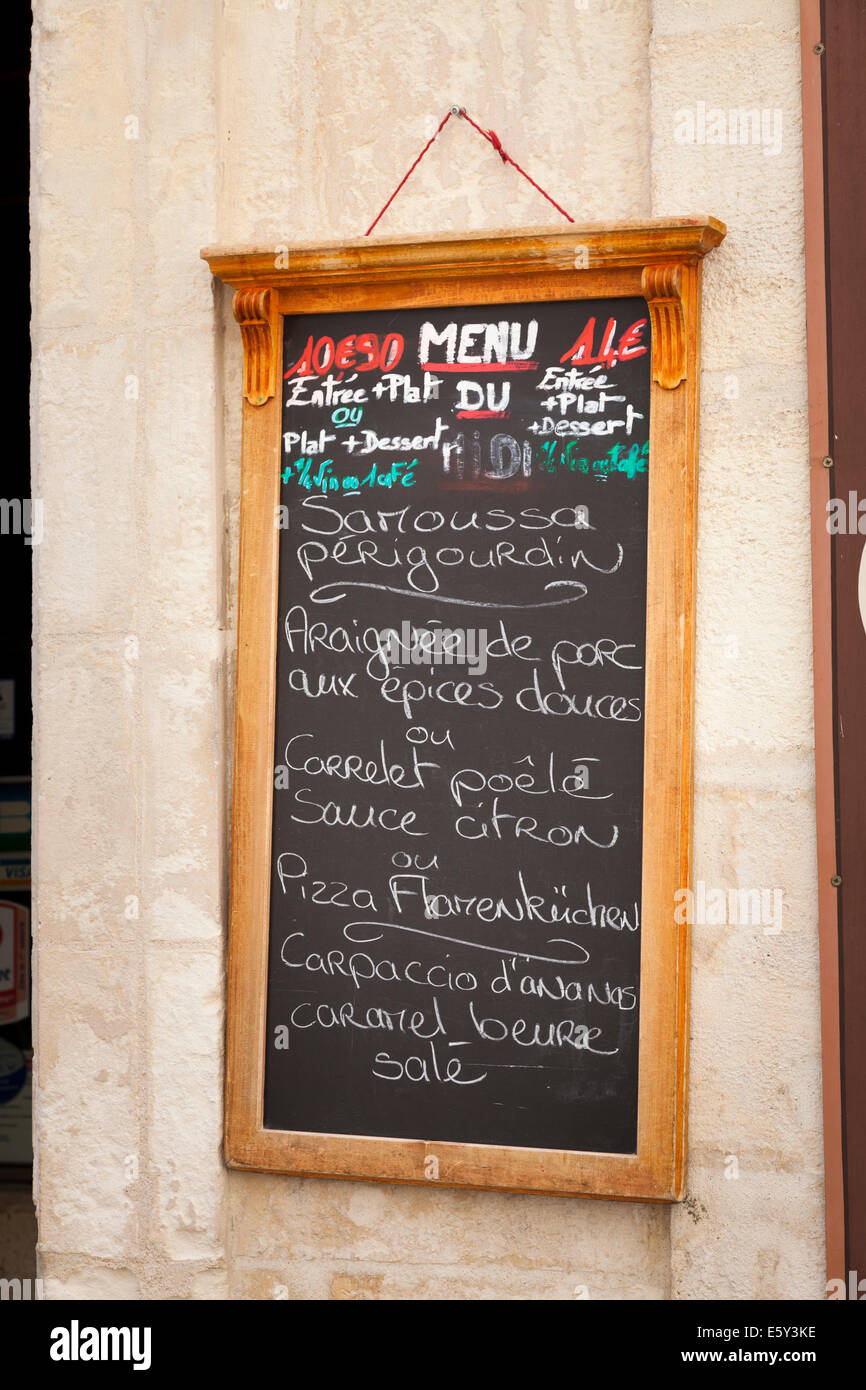 10€90
Entrée + Plat
ou
Plat + Dessert
+ 1/4 vin ou 1 café
MENU
DU
MiDi
14€
Entrée
+ Plat
+ Dessert
+ 1/4 vin ou 1 café
Samoussa
périgourdin
Araignée de porc
aux épices douces
ou
Carrelet poêlé
Sauce citron
ou
Pizza Flamenküchen
Carpaccio d'ananas
caramel beurre
salé
VISA
alamy
Image ID: E5Y3KE
www.alamy.com